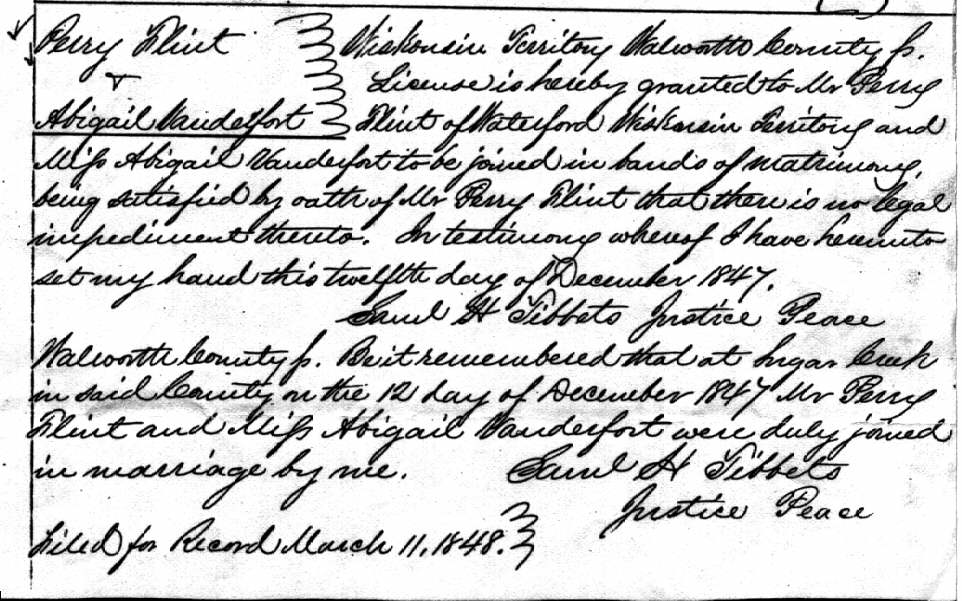 Perry Flint
&
Abigail Vanderfort
Wiskonsin Territory Walworth County ss.
License is hereby granted to Mr Perry
Flint of Waterford Wiskonsin Territory and
Miss Abigail Vanderfort to be joined in bands of matrimony,
being satisfied by oath of Mr Perry Flint that there is no legal
impediment thereto. In testimony whereof I have hereunto
set my hand this twelfth day of December 1847.
Saml H Tibbets Justice Peace
Walworth County ss. Be it remembered that at Sugar Creek
in said County on the 12 day of December 1847 Mr Perry
Flint and Miss Abigail Vanderfort were duly joined
in marriage by me. Saml H Tibbets
Justice Peace
Filed for Record March 11, 1848.